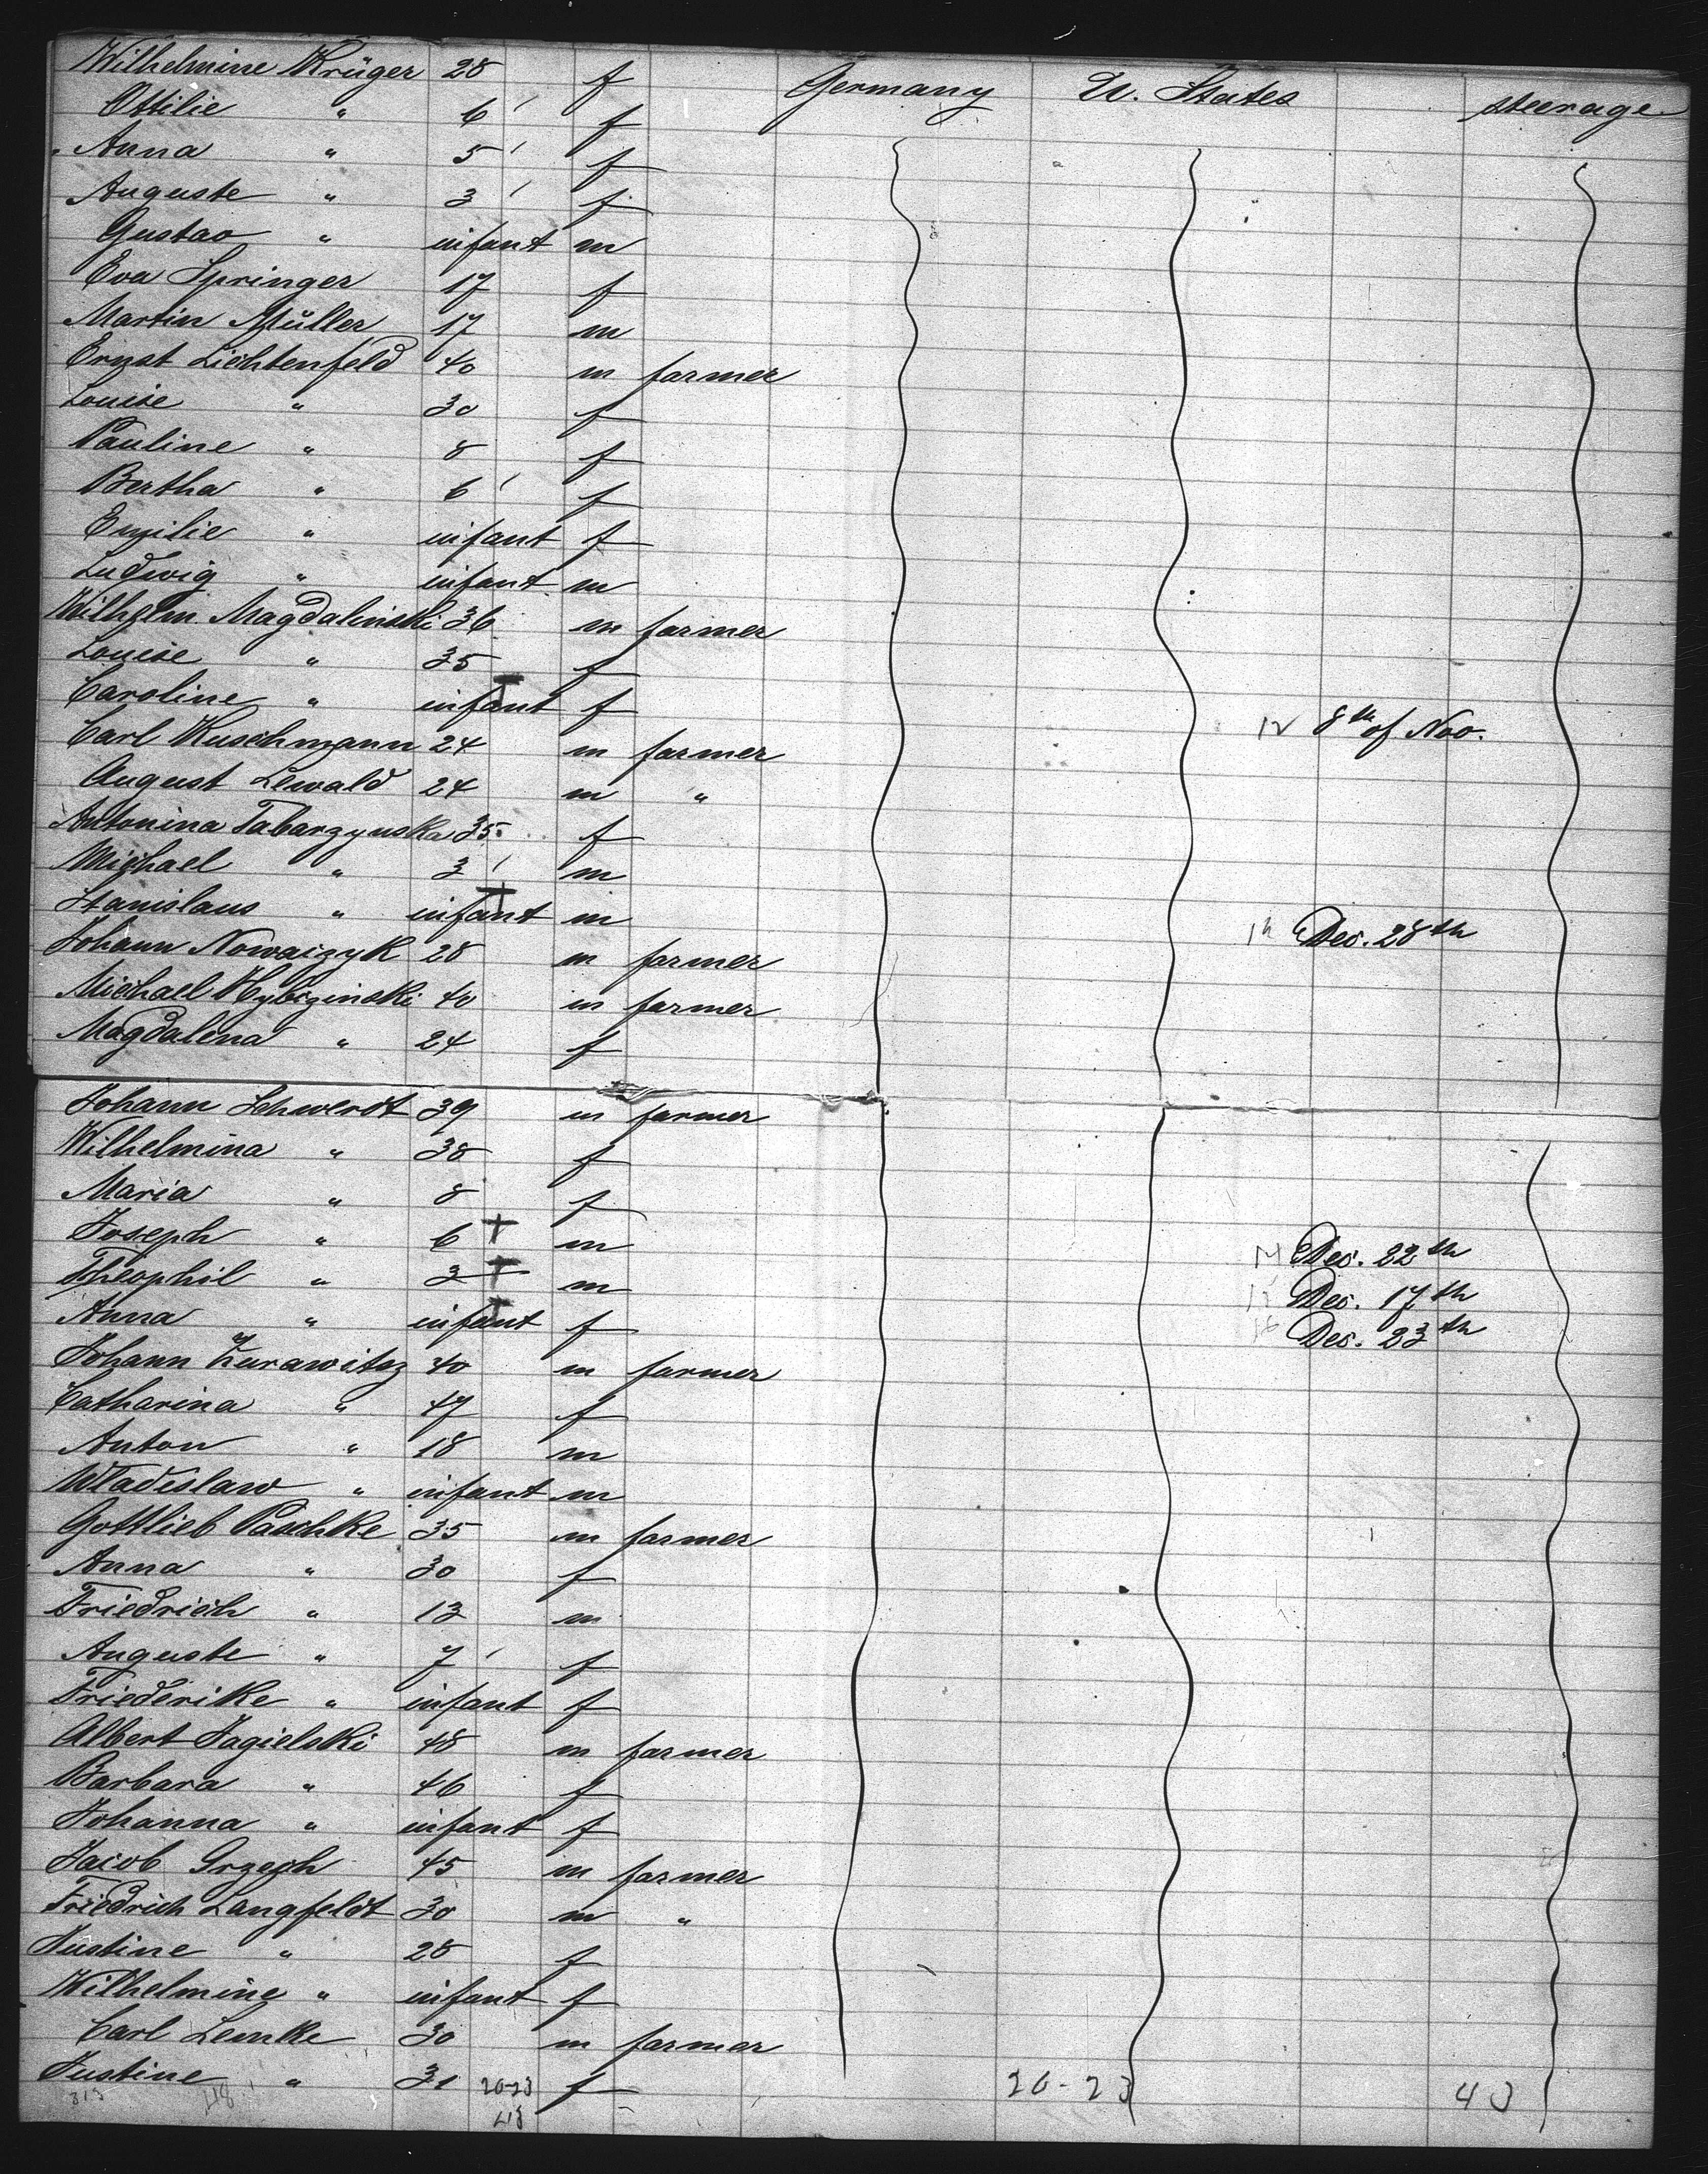 Wilhelmine Krüger 28 f Germany U. States steerage
Ottilie " 6 f
Anna " 5 f
Auguste " 3 f
Gustav " infant m
Eva Springer 17 f
Martin Müller 17 m
Ernst Lichtenfeld 40 m farmer
Louise " 30 f
Pauline " 8 f
Bertha " 6 f
Emilie " infant f
Ludwig " infant m
Wilhelm Magdalinski 36 m farmer
Louise " 35 f
Caroline " infant f 8th of Nov.
Carl Kuschmann 24 m farmer
August Lewald 24 m "
Antonina Tabarzynska 35 f
Michael " 3 m
Stanislaus " infant m Dec. 28th
Johann Nowaizyk 28 m farmer
Michael 40 m farmer
Magdalena " 24 f
Johann Schwerdt 39 m farmer
Wilhelmina " 38 f
Maria " 8 f
Joseph " 6 + m Dec. 22th
Theophil " 3 + m Dec. 17th
Anna " infant f Dec. 23th
Johann Zurawitz 40 m farmer
Catharina " 47 f
Anton " 18 m
Wladislaw " infant m
Gottlieb Paschke 35 m farmer
Anna " 30 f
Friedrich " 13 m
Auguste " 7 f
Friederike " infant f
Albert Jagielski 48 m farmer
Barbara " 46 f
Johanna " infant f
Jacob 45 m farmer
Friedrich Langfeldt 30 m "
Justine " 28 f
Wilhelmine " infant f
Carl Lemke 30 m farmer
Justine " 31 20-23 f 20-23 43